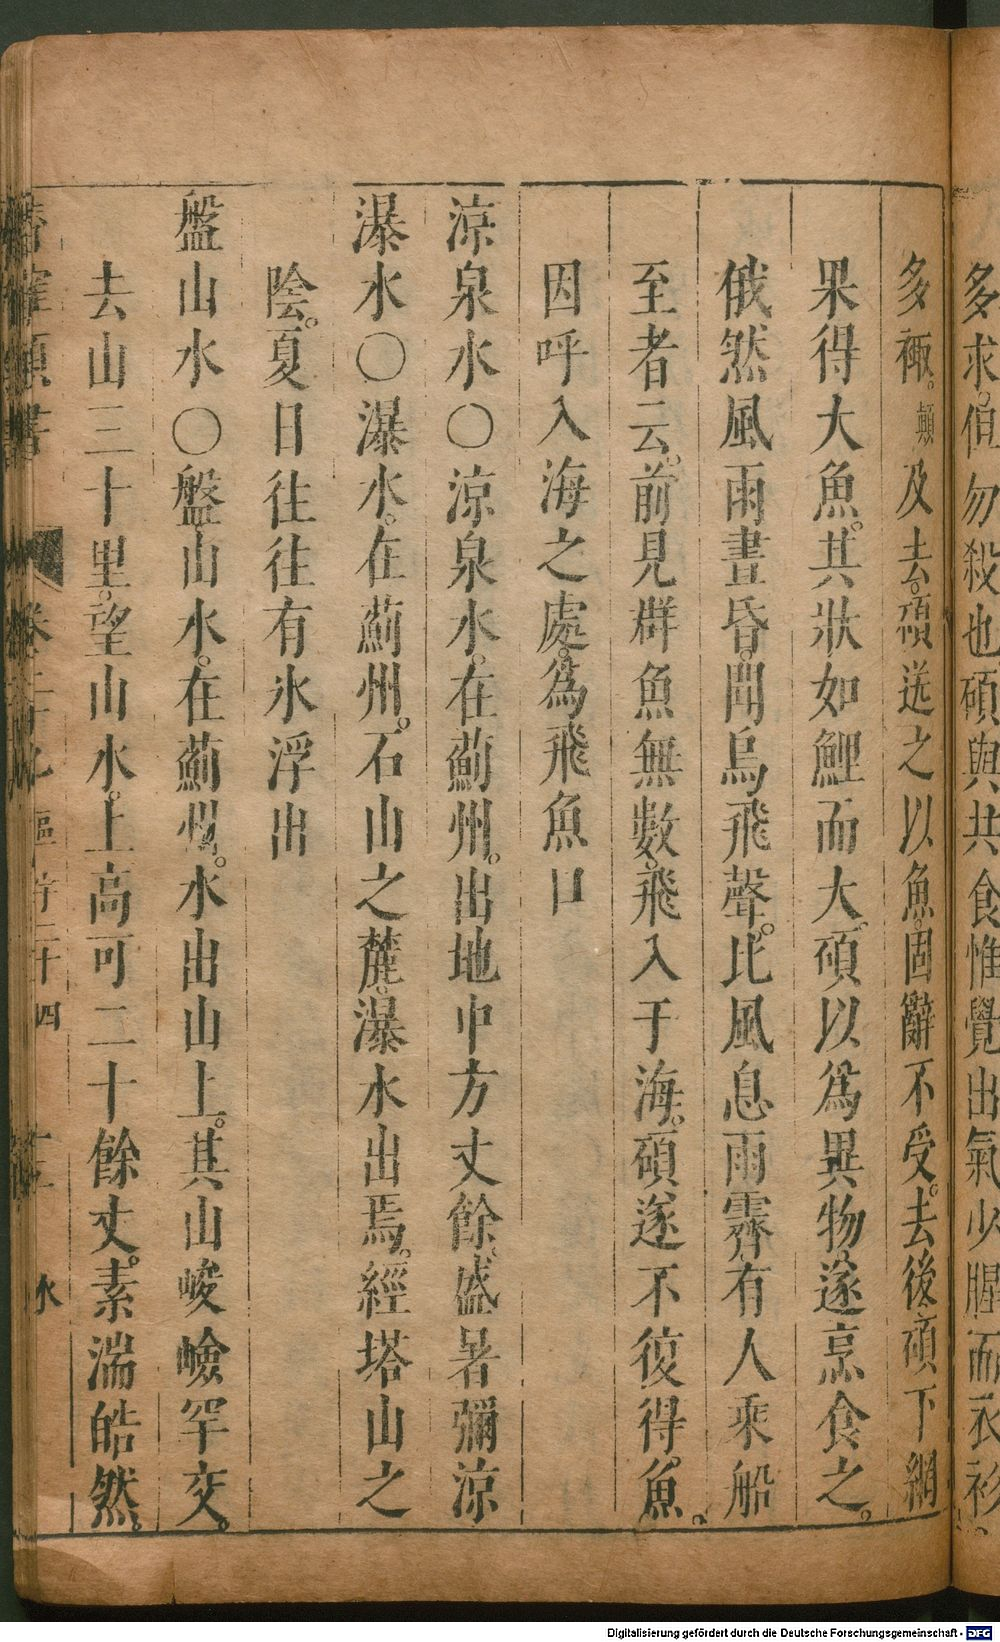 多求。但勿殺也碩與共食惟覺出氣少腥而衣衫
多襒。顛及去。碩送之以魚。固辭不受。去後。碩下網
果得大魚。其狀如鯉而大。碩以為異物。遂烹食之。
俄然風雨晝昏。聞鳥飛聲。比風息雨霽。有人乘船
至者云。前見群魚無數。飛入于海。碩遂不復得魚。
因呼入海之處。為飛魚口
涼泉水〇涼泉水。在薊州。出地中方丈餘。盛暑彌涼
瀑水〇瀑水。在薊州。石山之麓。瀑水出焉。經塔山之
陰。夏日往往有氷浮出
盤山水〇盤山水。在薊州。水出山上。其山峻嶮罕交。
去山三十里。望山水。上高可二十餘丈。素湍皓然。
潛確類書 卷三十 區宇二十四 水
Digitalisierung gefördert durch die Deutsche Forschungsgemeinschaft - DFG